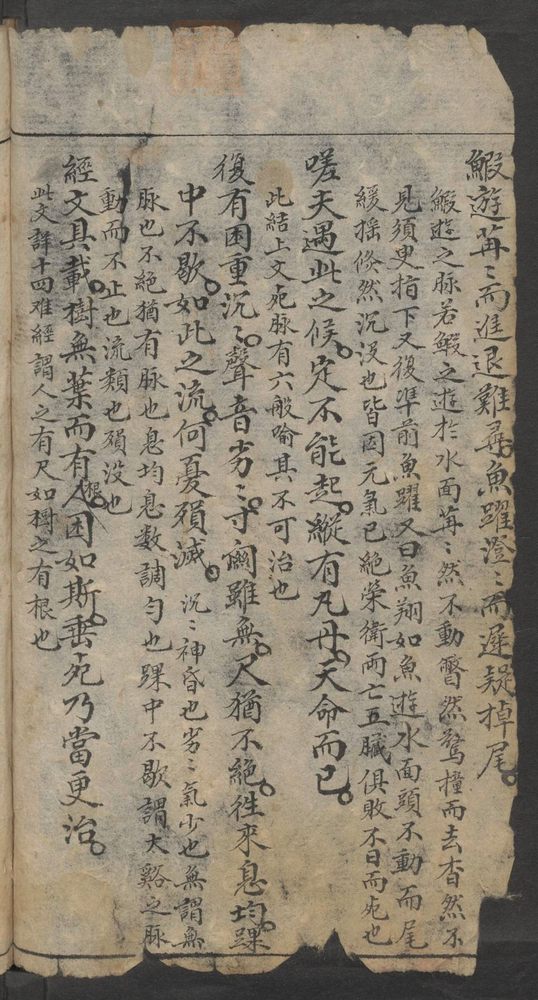 鰕遊苒〻而進退難尋魚躍澄〻而遲疑掉尾
鰕遊之脉若鰕之遊於水面苒〻然不動瞥然驚撞而去杳然不
見須臾指下又復準前魚躍又曰魚翔如魚遊水面頭不動而尾
緩揺倐然沉没也皆因元氣已絶榮衛兩亡五臟俱敗不日而死也
嗟夫遇此之候定不能起縱有凡丹天命而已
此結上文死脉有六般喻其不可治也
復有困重沉〻聲音劣〻寸関雖無尺猶不絶徃來息均踝
中不歇如此之流何憂殞滅 沉〻神昏也劣〻氣少也無謂無
脉也不絶猶有脉也息均息數調勻也踝中不歇謂大谿之脉
動而不止也流類也殞没也
經文具載樹無葉而有根人困如斯垂死乃當更治
此文詳十四难經謂人之有尺如樹之有根也